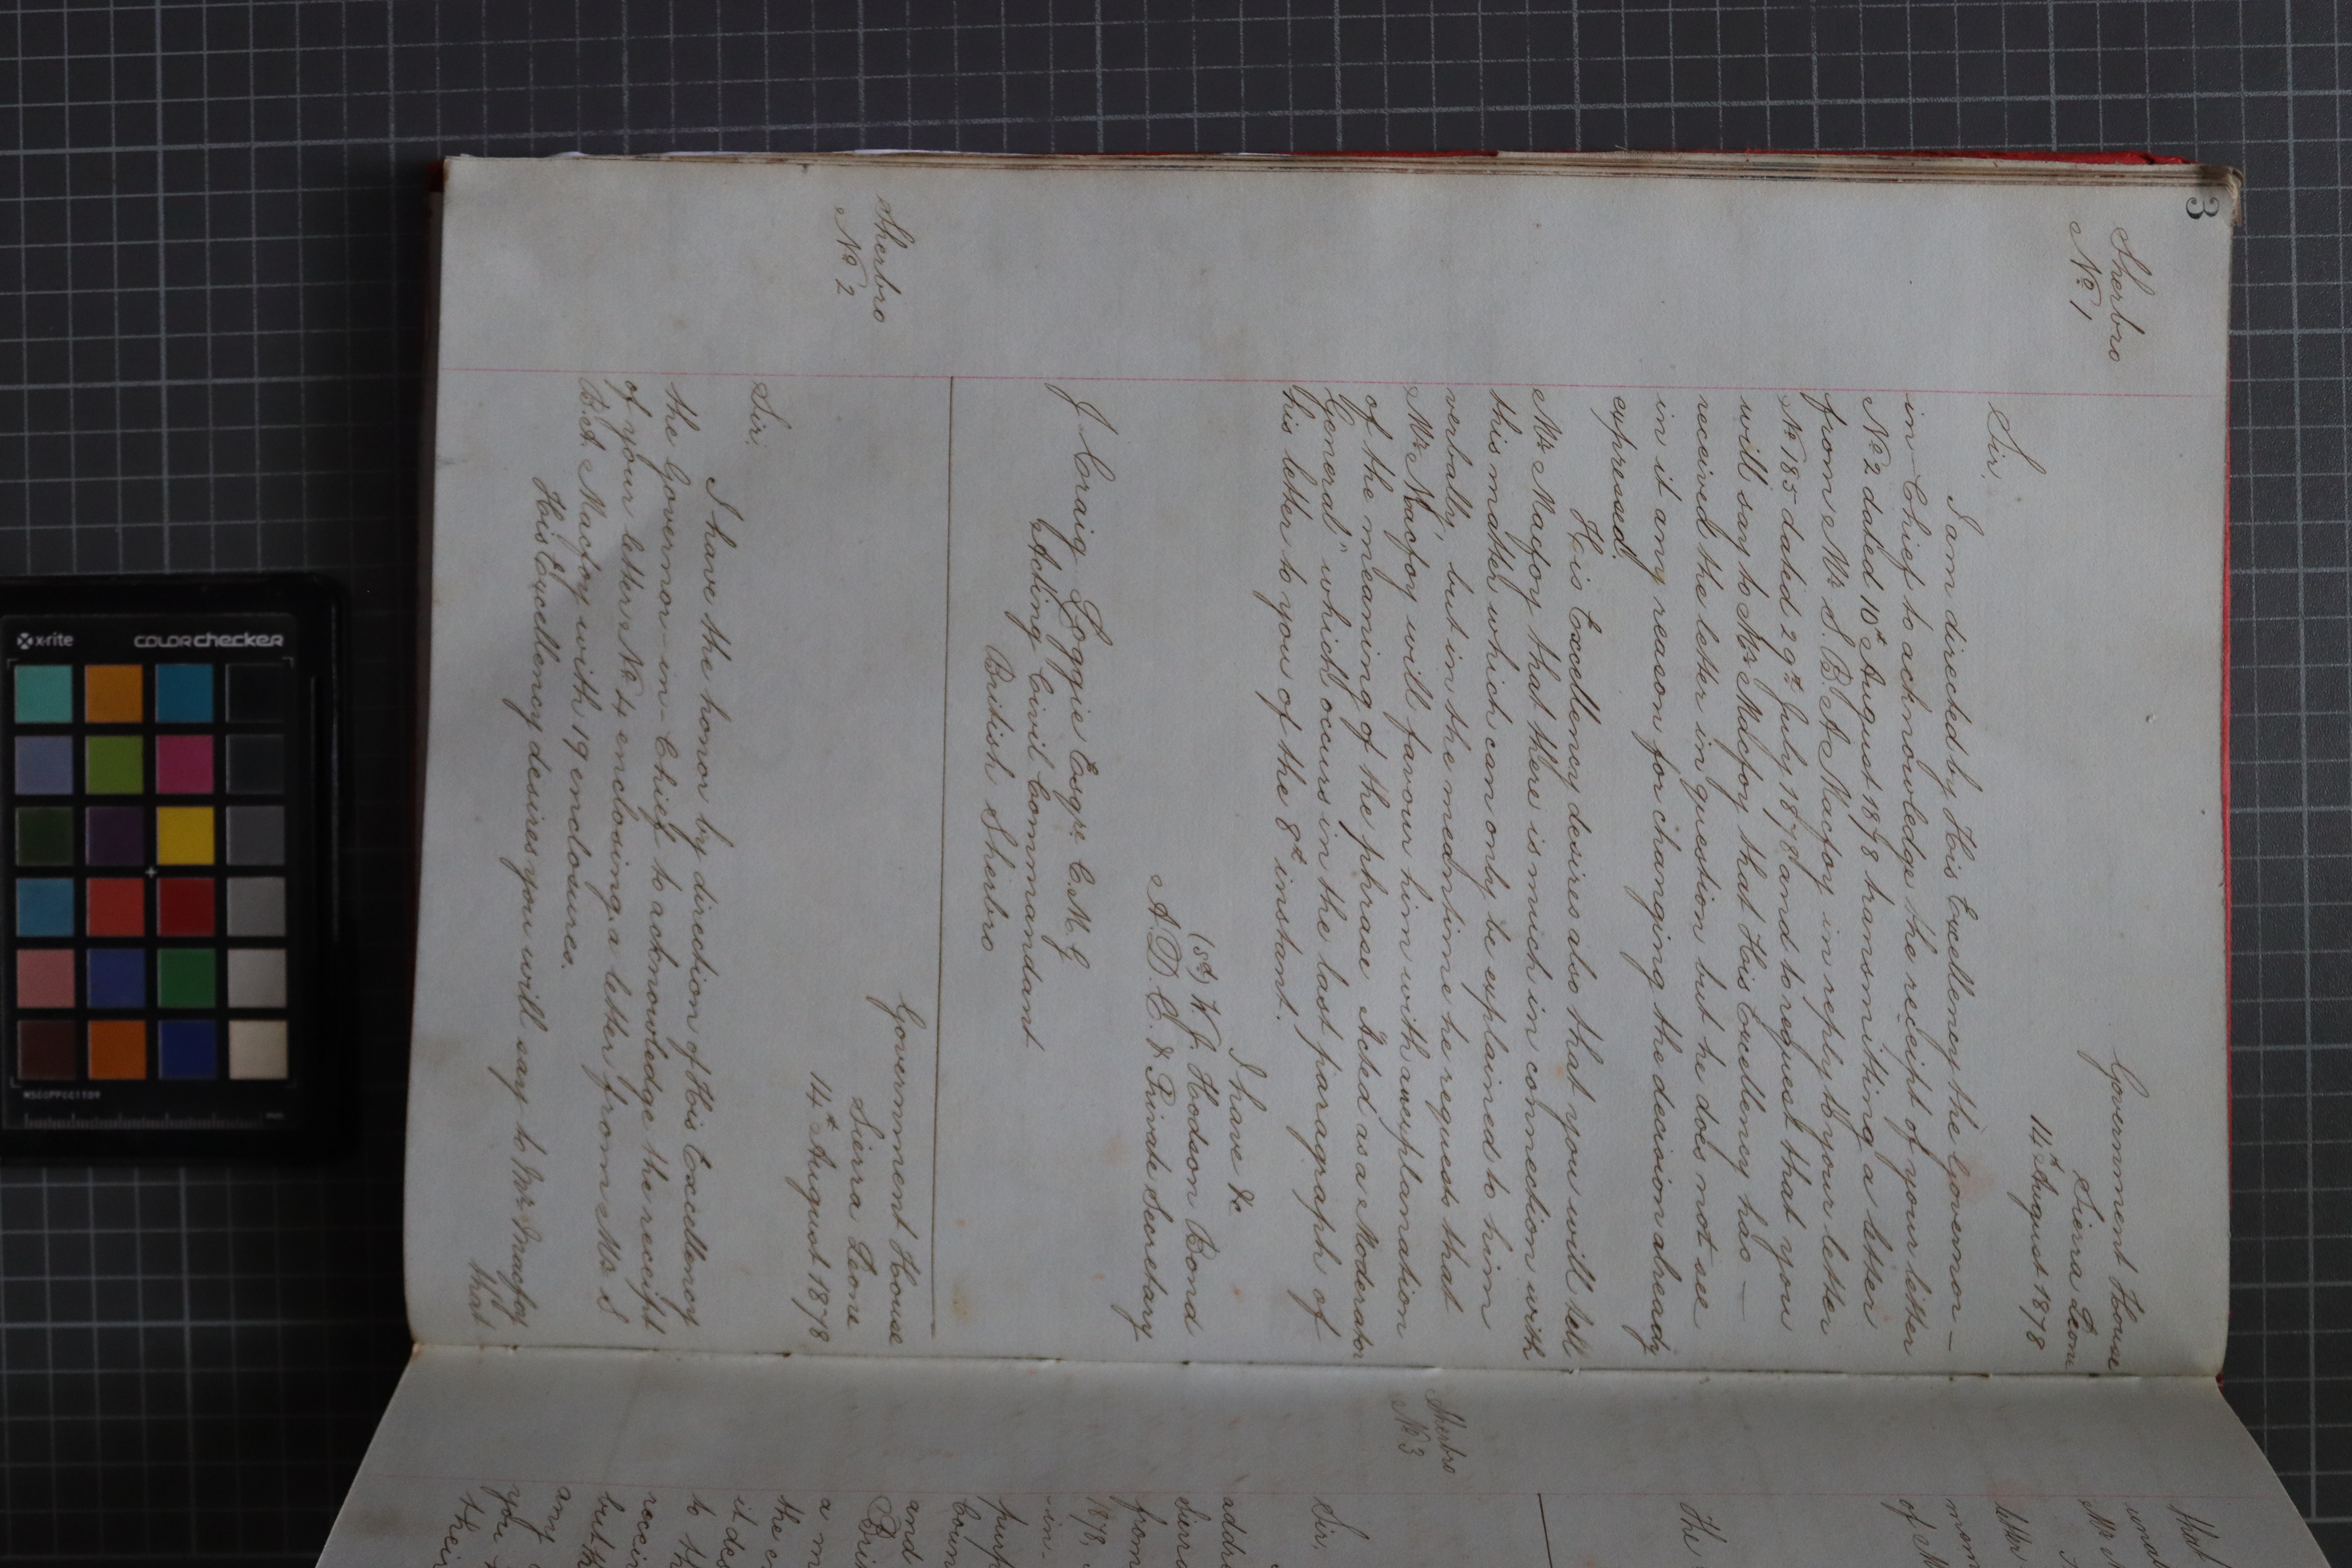 3
Sherbro
No 1
Government House
Sierra Leone
14th August 1878
Sir,
I am directed by His Excellency the Governor-
in-Chief to acknowledge the receipt of your letter
No 2 dated 10th August 1878 transmitting a letter
from Mr S. B. A Macfoy in reply to your letter
No 185 dated 29th July 1878 and to request that you
will say to Mr Macfoy that His Excellency has -
received the letter in question but he does not see
in it any reason for changing the decision already
expressed.
His Excellency desires also that you will tell
Mr Macfoy that there is much in connection with
this matter which can only be explained to him
verbally, but in the meantime he requests that
Mr Macfoy will favour him with an explanation
of the meaning of the phrase "Acted as a Moderator
General" which occurs in the last paragraph of
his letter to you of the 8th instant.
I have &c
(sd) W. J. Hodson Bond
A. D. C. & Private Secretary
J Craig Loggie Esqre C. M. G
Acting Civil Commandant
British Sherbro
Sherbro
No 2
Government House
Sierra Leone
14th August 1878
Sir,
I have the honor by direction of His Excellency
the Governor-in-Chief to acknowledge the receipt
of your letter No 4 enclosing a letter from Mr S
B. A. Macfoy with 19 enclosures.
His Excellency desires you will say to Mr Macfoy
that
that
Mr
letter
mem
of M
The
Sherbro
No 3
Sir,
addre
Sierra
from
1878,
in-
purp
Coun
and
Bri
a m
the e
it de
to th
receiv
but th
any
you
their
x-rite
colorchecker
MSCCPPCC1109